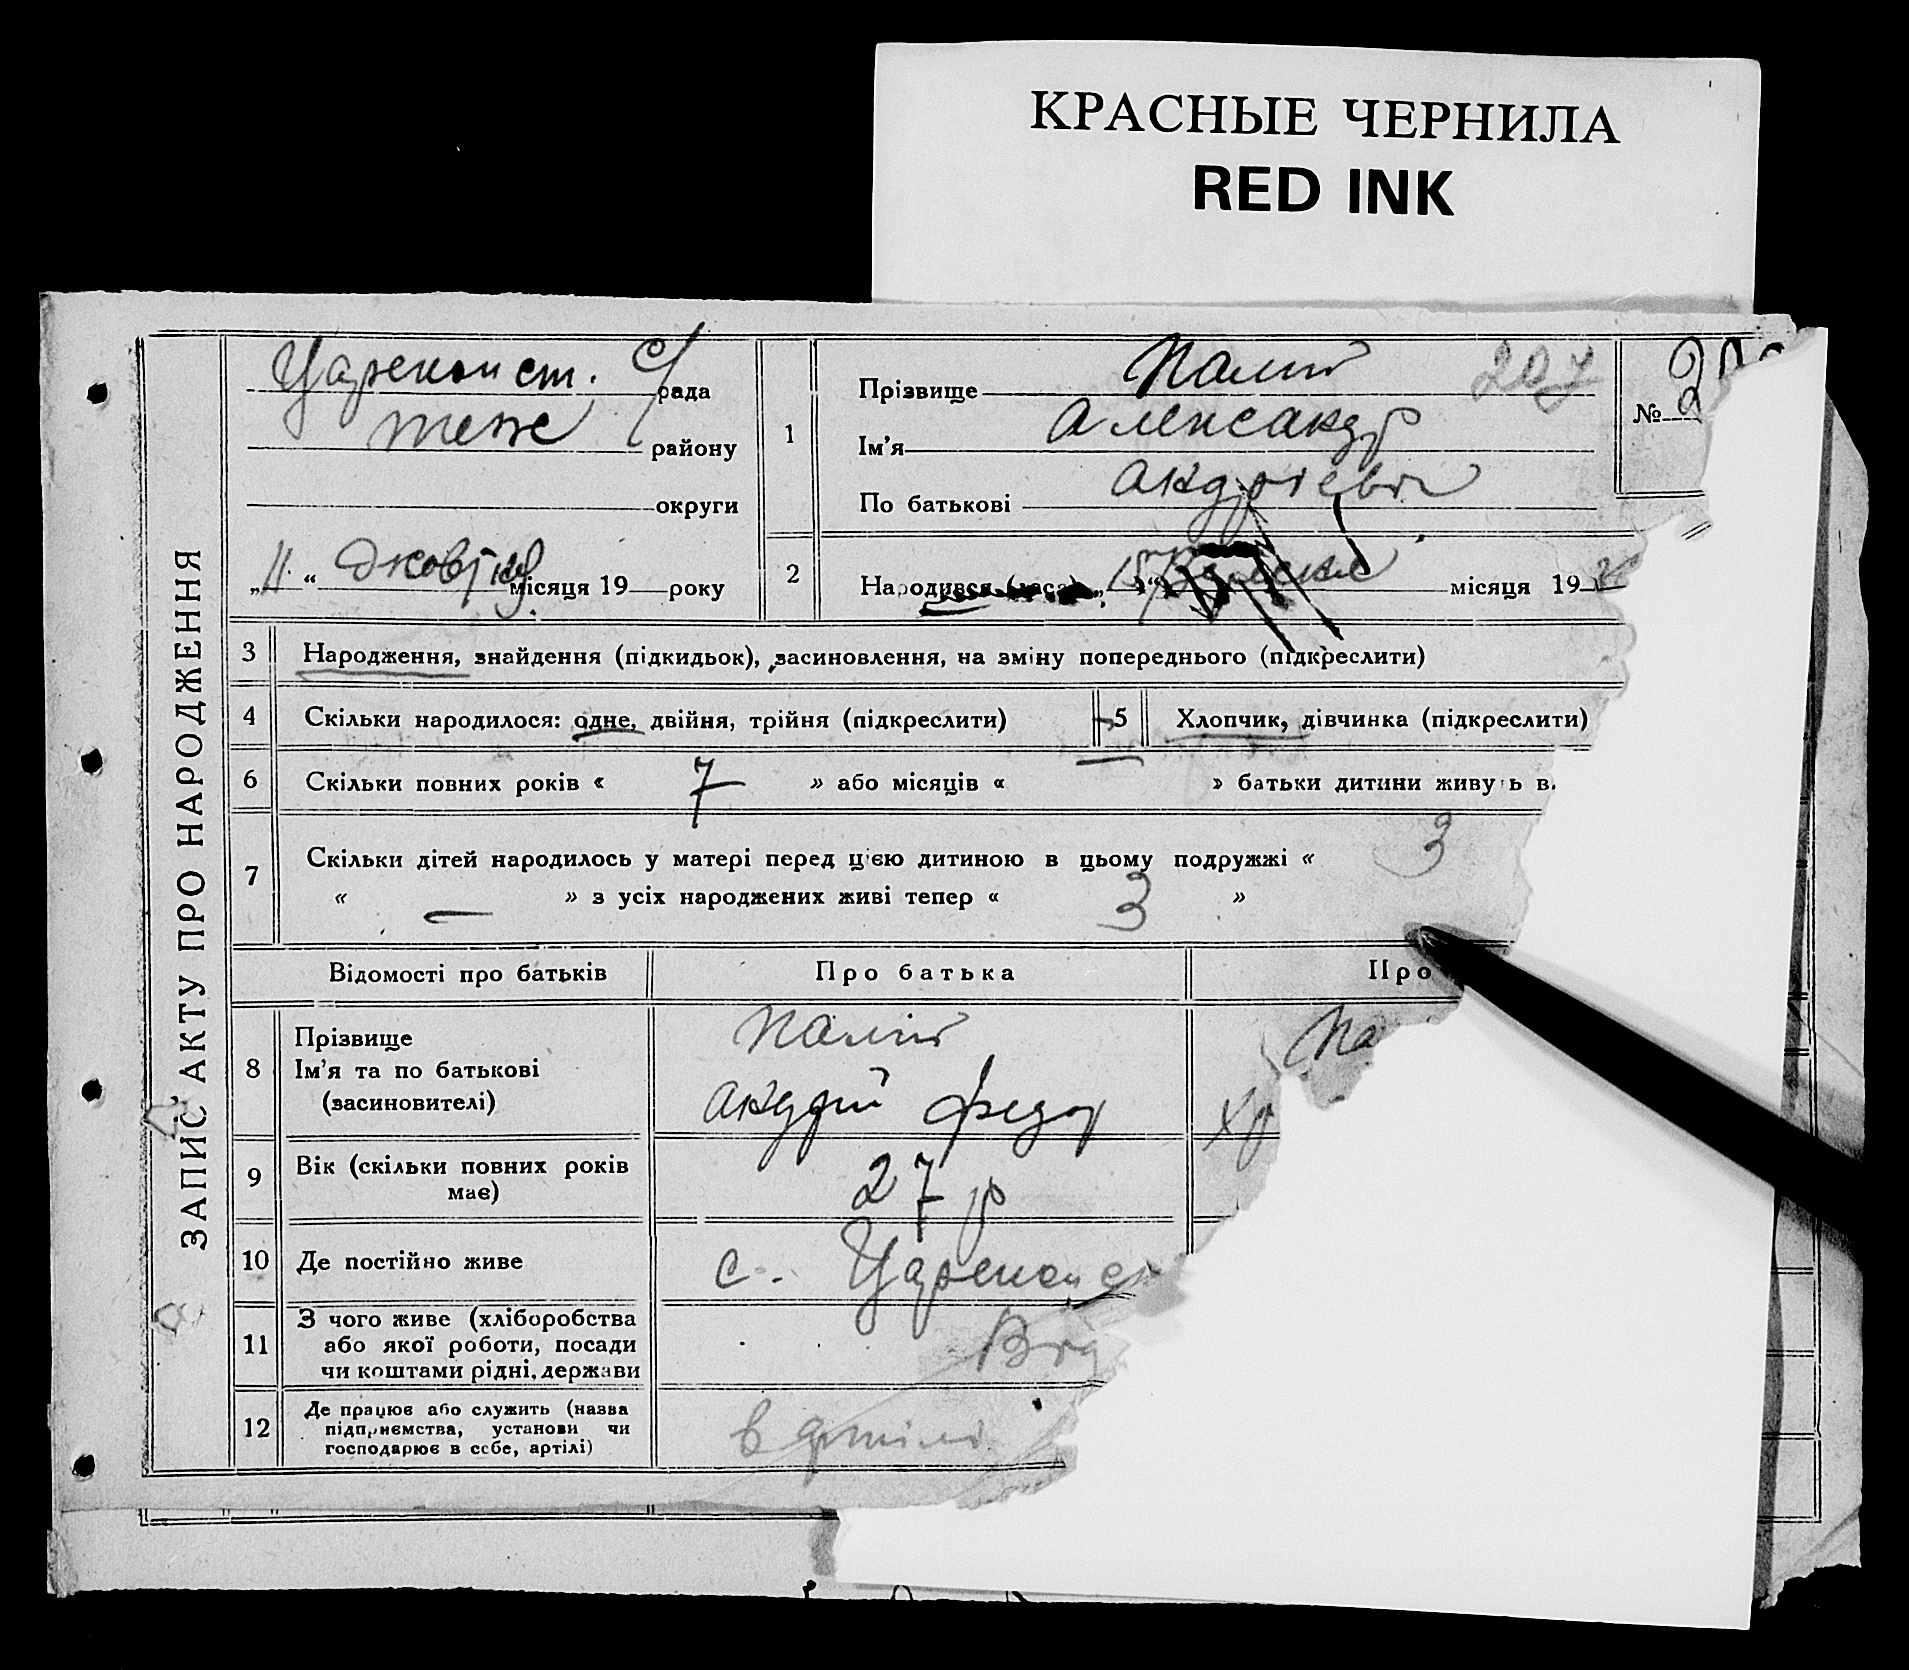 КРАСНЫЕ ЧЕРНИЛА
RED INK
ЗАПИС АКТУ ПРО НАРОДЖЕННЯ
Цареконст. с/рада
теж району
округи
„11“ Жовтня місяця 19 року
1
Прізвище Палій 207
Ім'я Александр
По батькові Андрієвич
№ 2
2
Народився „15“ місяця 19
3 Народження, знайдення (підкидьок), засиновлення, на зміну попереднього (підкреслити)
4 Скільки народилося: одне, двійня, трійня (підкреслити)
5 Хлопчик, дівчинка (підкреслити)
6 Скільки повних років « 7 » або місяців « » батьки дитини живуть в
7 Скільки дітей народилось у матері перед цією дитиною в цьому подружжі « 3
« — » з усіх народжених живі тепер « 3 »
Відомості про батьків Про батька Про
8 Прізвище Палій Па
Ім'я та по батькові
(засиновителі) Андрій Федор Хр
9 Вік (скільки повних років
має) 27 р
10 Де постійно живе с. Цареконс
11 З чого живе (хліборобства
або якої роботи, посади
чи коштами рідні, держави
12 Де працює або служить (назва
підприємства, установи чи
господарює в себе, артілі) в артілі